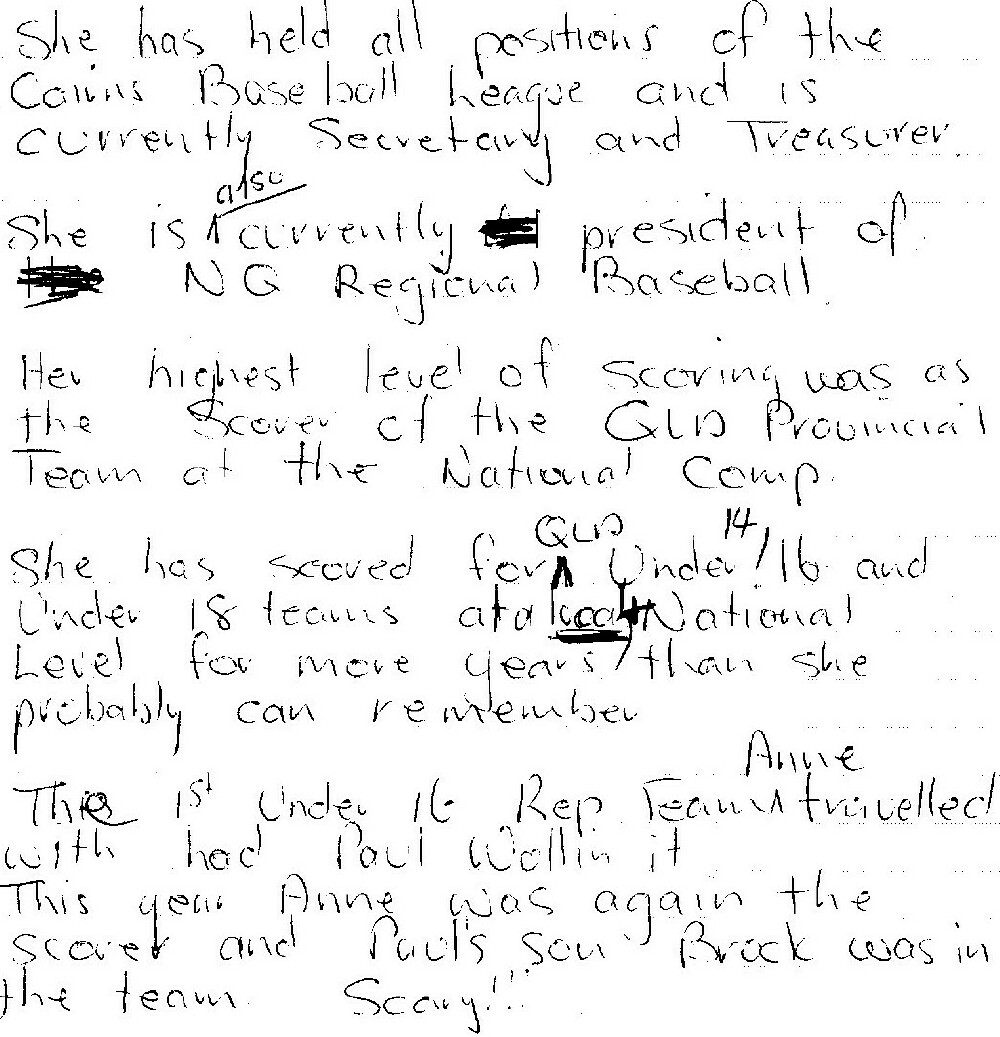 She has held all positions of the
Cairns Baseball League and is
currently Secretary and Treasurer.
She is also currently president of
NQ Regional Baseball.
Her highest level of scoring was as
the Scorer of the QLD Provincial
Team at the National Comp.
She has scored for QLD Under 14/16 and
Under 18 teams at a local + National
Level for more years than she
probably can remember
The 1st Under 16 Rep Team Anne travelled
with had Paul Wall in it
This year Anne was again the
scorer and Paul's son Brock was in
the team. Scary!!!